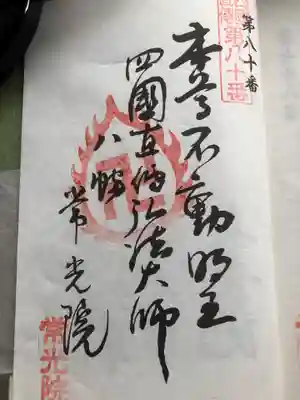 第八十番
第八十番
本尊不動明王
四國直傳弘法大師
八幡
常光院
常光院